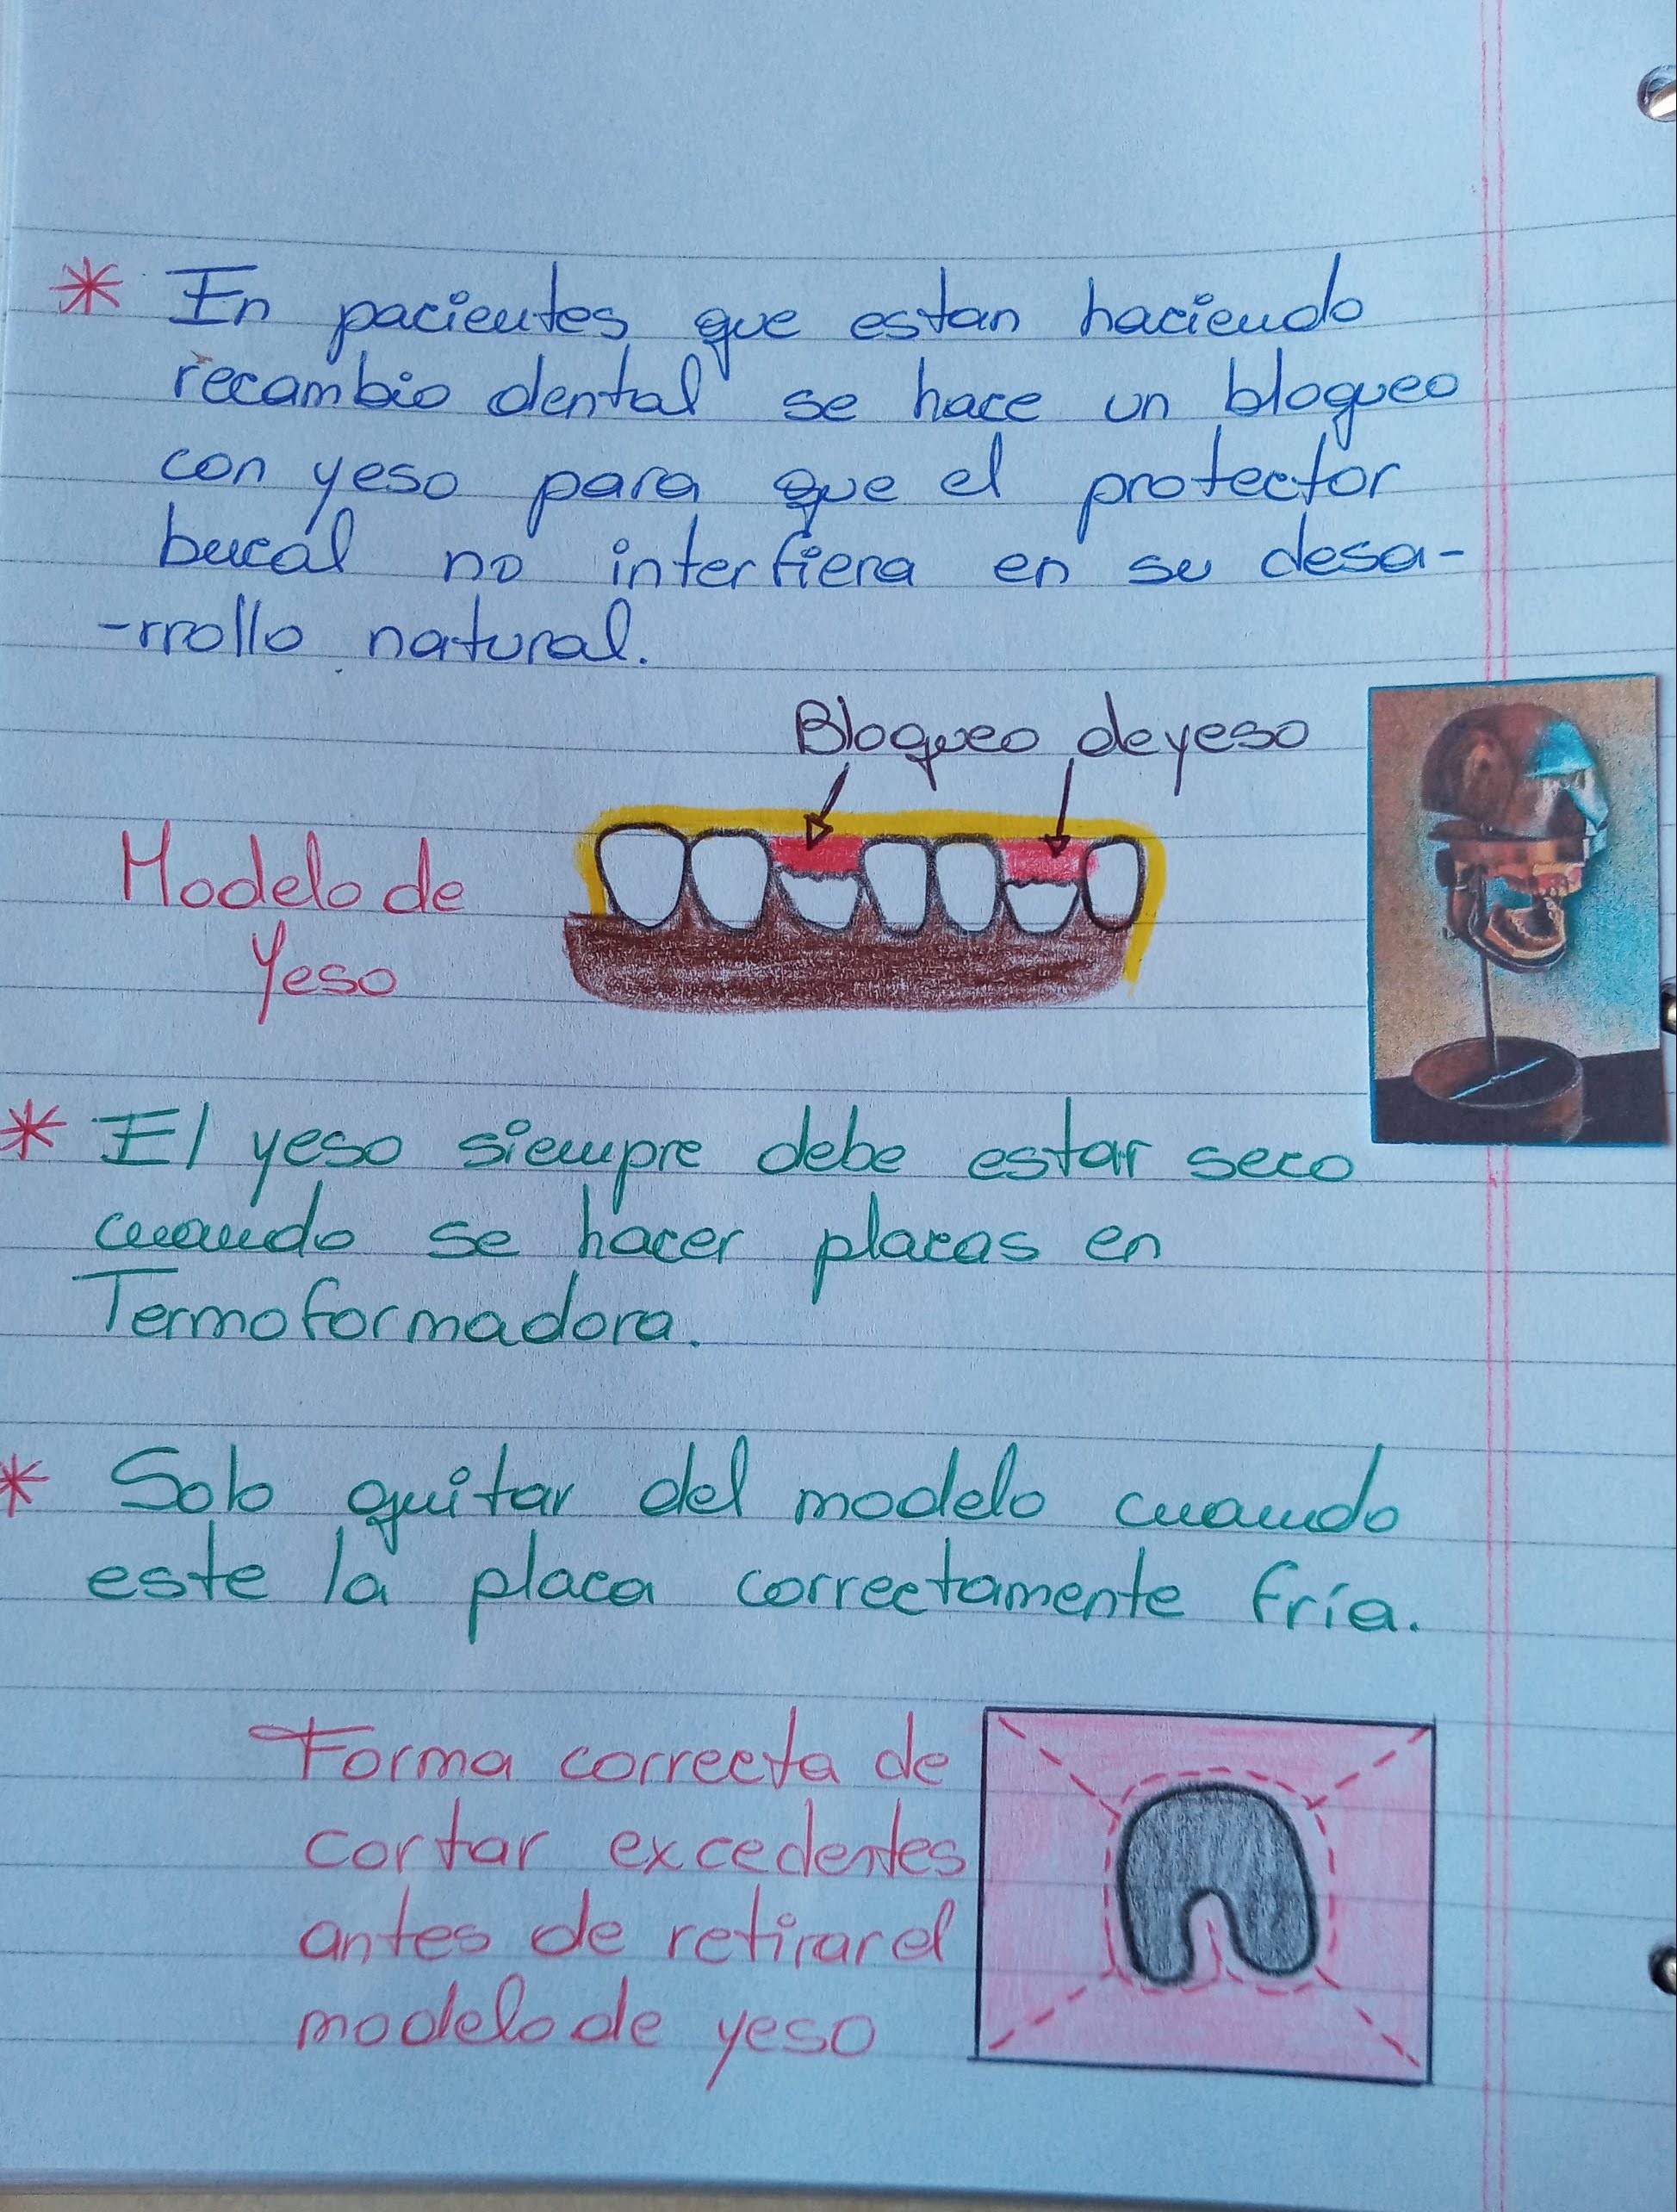 * En pacientes que estan haciendo
recambio dental se hace un bloqueo
con yeso para que el protector
bucal no interfiera en su desa-
-rrollo natural.
Bloqueo de yeso
Modelo de
Yeso
* El yeso siempre debe estar seco
cuando se hacer placas en
Termoformadora.
* Solo quitar del modelo cuando
este la placa correctamente fría.
Forma correcta de
cortar excedentes
antes de retirar el
modelo de yeso